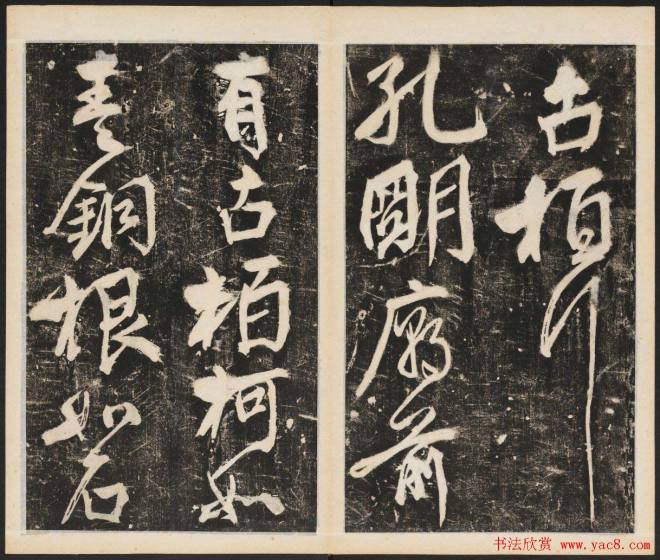 古柏行
孔明廟前
有古柏柯如
青銅根如石
书法欣赏 www.yac8.com